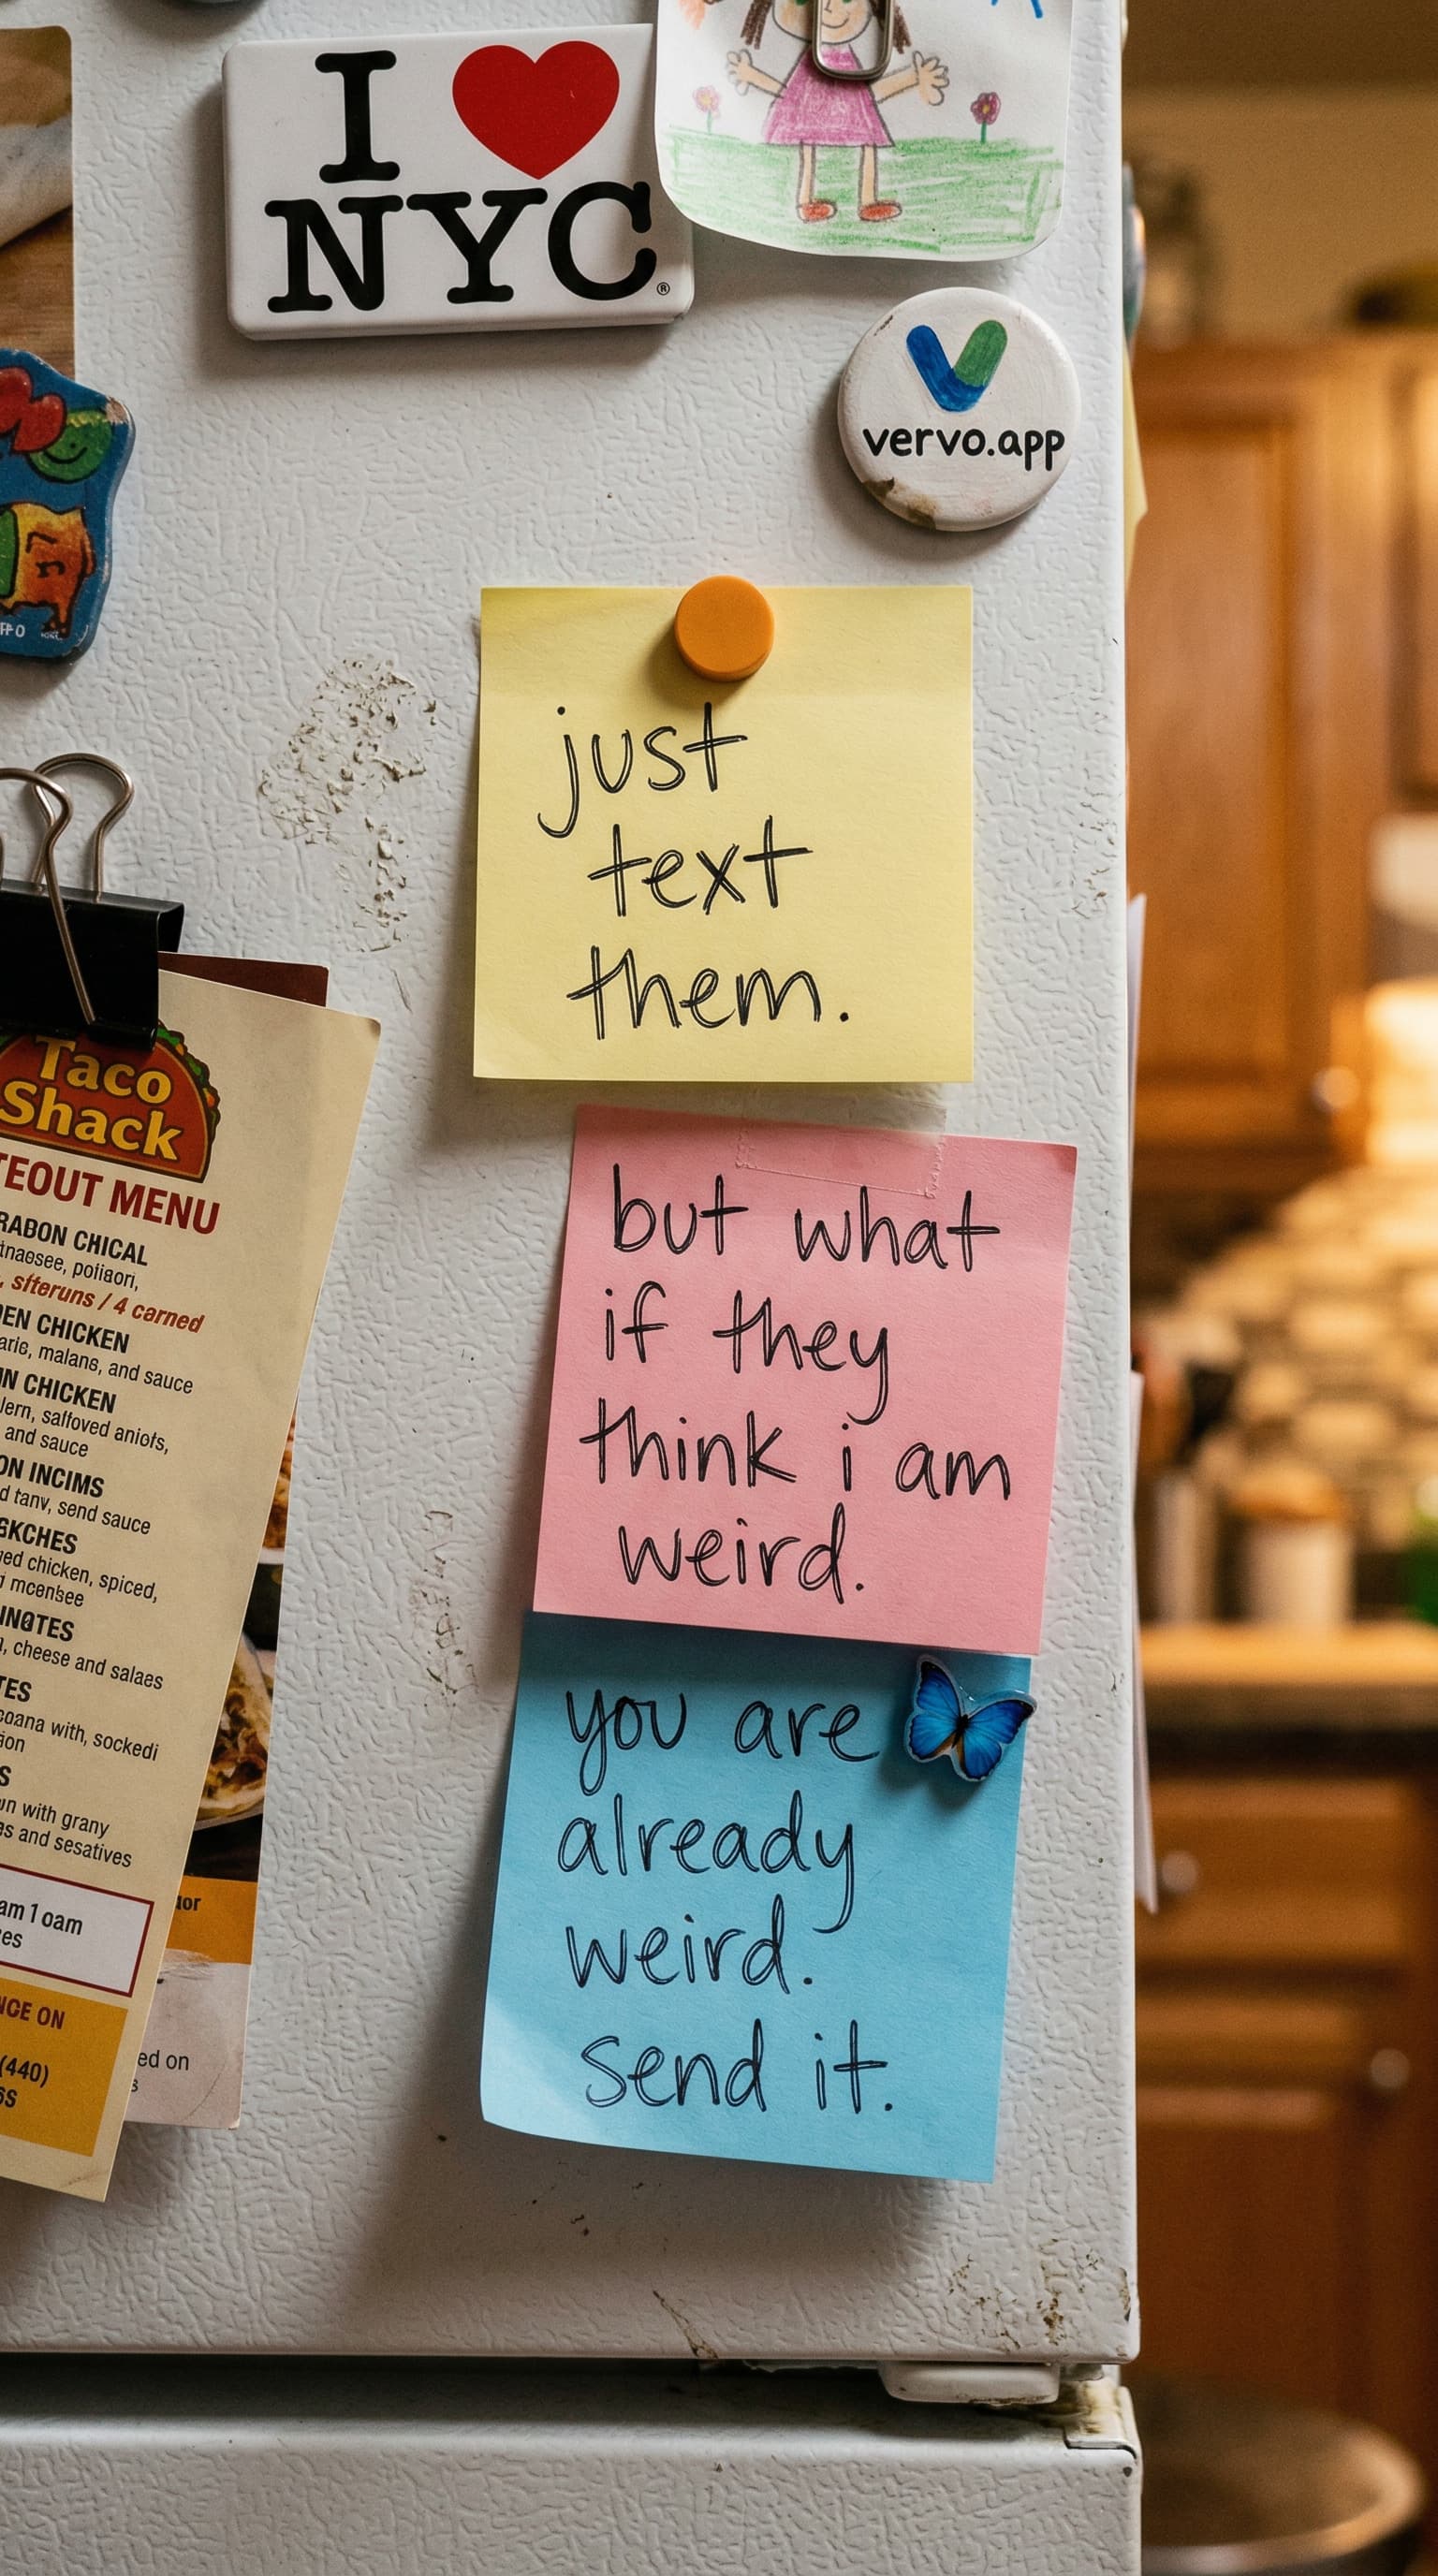 I ❤ NYC®
vervo.app
just
text
them.
but what
if they
think i am
weird.
you are
already
weird.
send it.
Taco
Shack
TEOUT MENU
RABON CHICAL
, sfteruns / 4 carned
DEN CHICKEN
arle, malans, and sauce
N CHICKEN
lern, salfoved aniots,
and sauce
ON INCIMS
d tanv, send sauce
GKCHES
ved chicken, spiced,
INOTES
, cheese and salaes
TES
coana with, sockedi
ion
S
vn with grany
es and sesatives
am 1 oam
es
NCE ON
(440)
6S
ed on